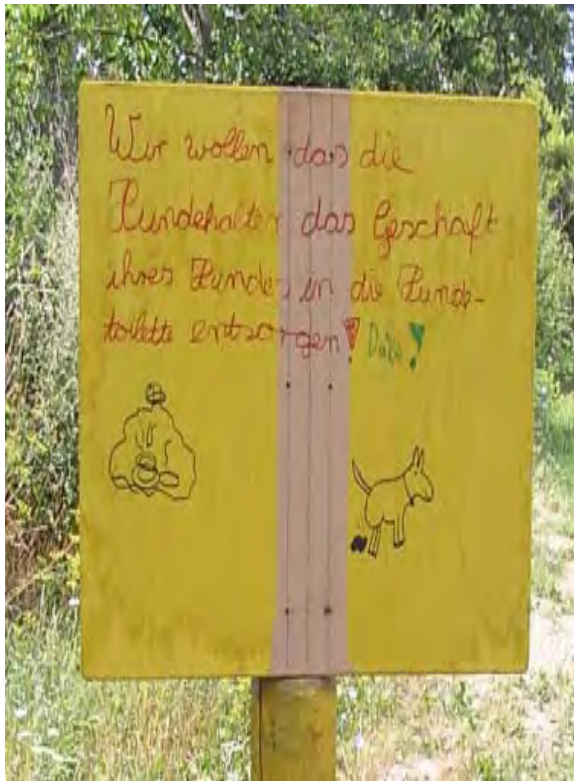 Wir wollen das die
Hundehalter das Geschäft
ihres Hundes in die Hunde-
toilette entsorgen!